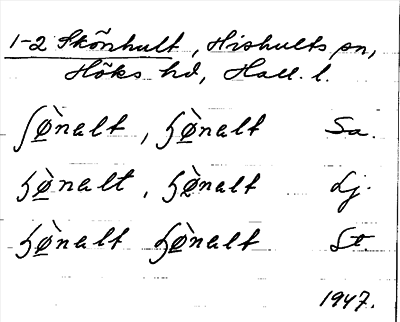 1-2 Skönhult, Hishults sn,
Höks hd, Hall. l.
ʃø̀nalt, ɧø̀nalt Sa.
ɧø̀nalt, ɧø̀nalt Lj.
ɧø̀nalt ɧø̀nalt St.
1947.